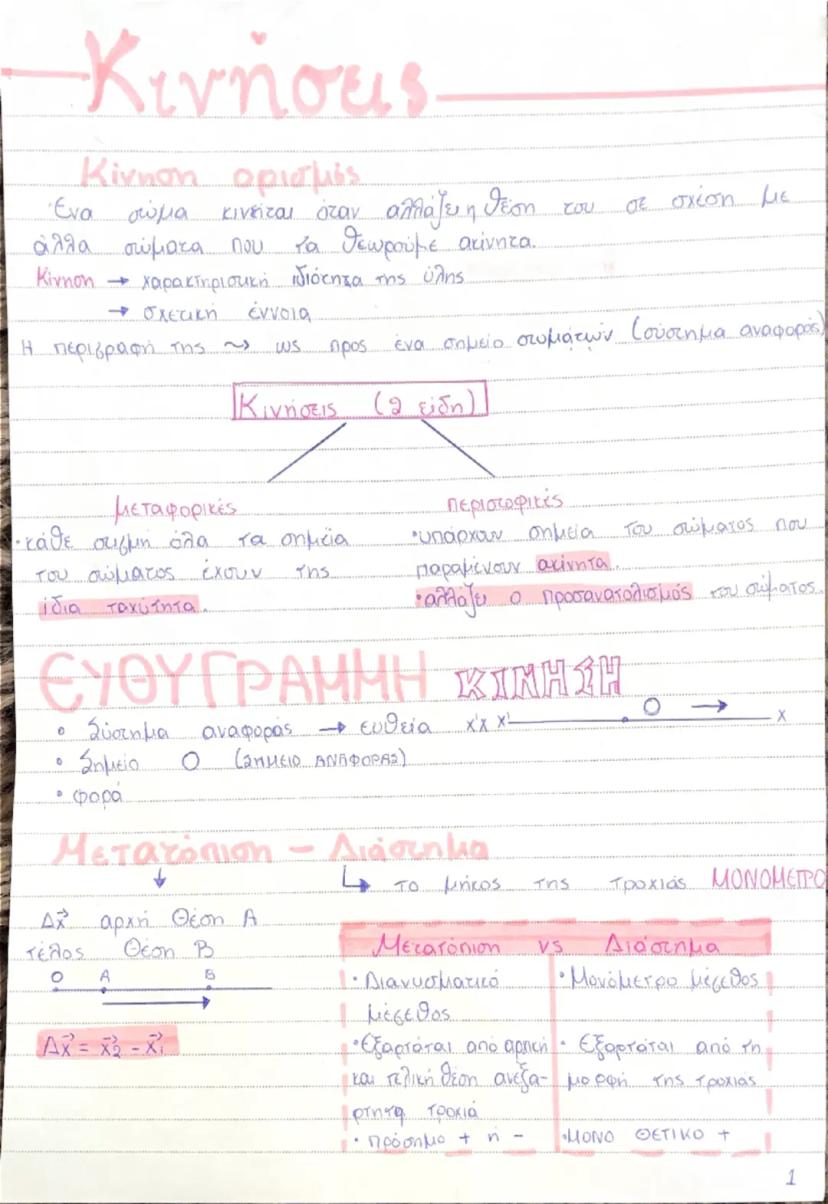 Κινήσεις
Κίνηση ορισμός
Ένα σώμα κινείται όταν αλλάζει η θέση του σε σχέση με
άλλα σώματα που τα θεωρούμε ακίνητα.
Κίνηση → χαρακτηριστική ιδιότητα της ύλης
→ σχετική έννοια
Η περιγραφή της ⤳ ως προς ένα σημείο σωμάτων (σύστημα αναφοράς)
Κινήσεις (2 είδη)
μεταφορικές
• κάθε στιγμή όλα τα σημεία
του σώματος έχουν της
ίδια ταχύτητα.
περιστοφικές
• υπάρχουν σημεία του σώματος που
παραμένουν ακίνητα.
• αλλάζει ο προσανατολισμός του σώματος.
ΕΥΘΥΓΡΑΜΜΗ ΚΙΝΗΣΗ
• Σύστημα αναφοράς → ευθεία x'x x' O → x
• Σημείο Ο (ΣΗΜΕΙΟ ΑΝΑΦΟΡΑΣ)
• φορά
Μετατόπιση - Διάστημα
↓
↳ το μήκος της τροχιάς ΜΟΝΟΜΕΤΡΟ
Δx⃗ αρχή Θέση Α
τέλος Θέση Β
Ο Α Β
Δx⃗ = x⃗2 - x⃗1
Μετατόπιση vs Διάστημα
• Διανυσματικό
μέγεθος
• Εξαρτάται από αρχική
και τελική θέση ανεξα-
ρτητα τροχιά
• πρόσημο + ή -
• Μονόμετρο μέγεθος
• Εξαρτάται από τη
μορφή της τροχιάς
• ΜΟΝΟ ΘΕΤΙΚΟ +
1